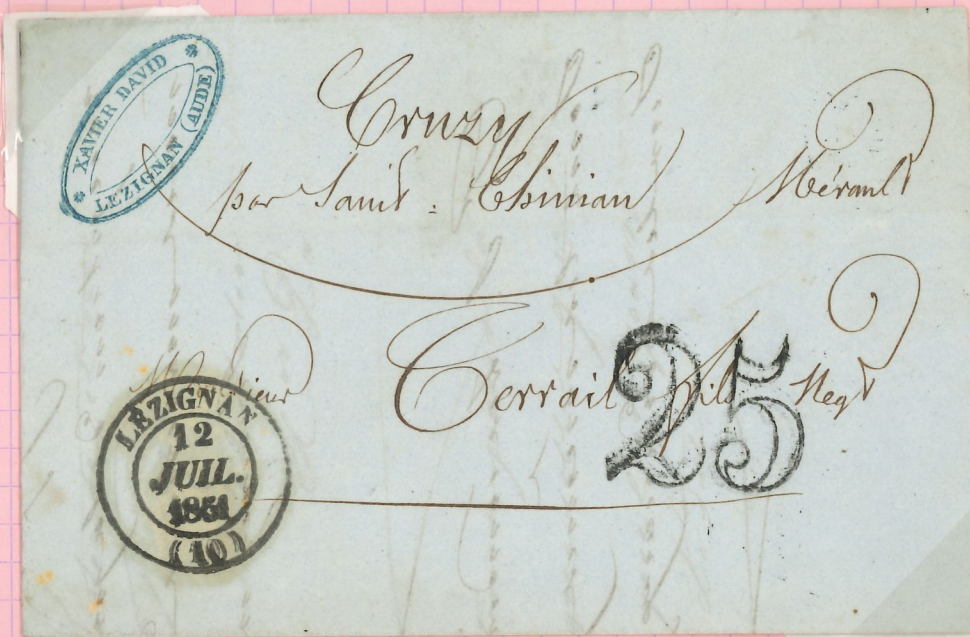 XAVIER DAVID
LEZIGNAN (AUDE)
Cruzy
par Saint-Chinian Hérault
Monsieur Terrail fils Negt
25
LÉZIGNAN
12
JUIL.
1851
(10)